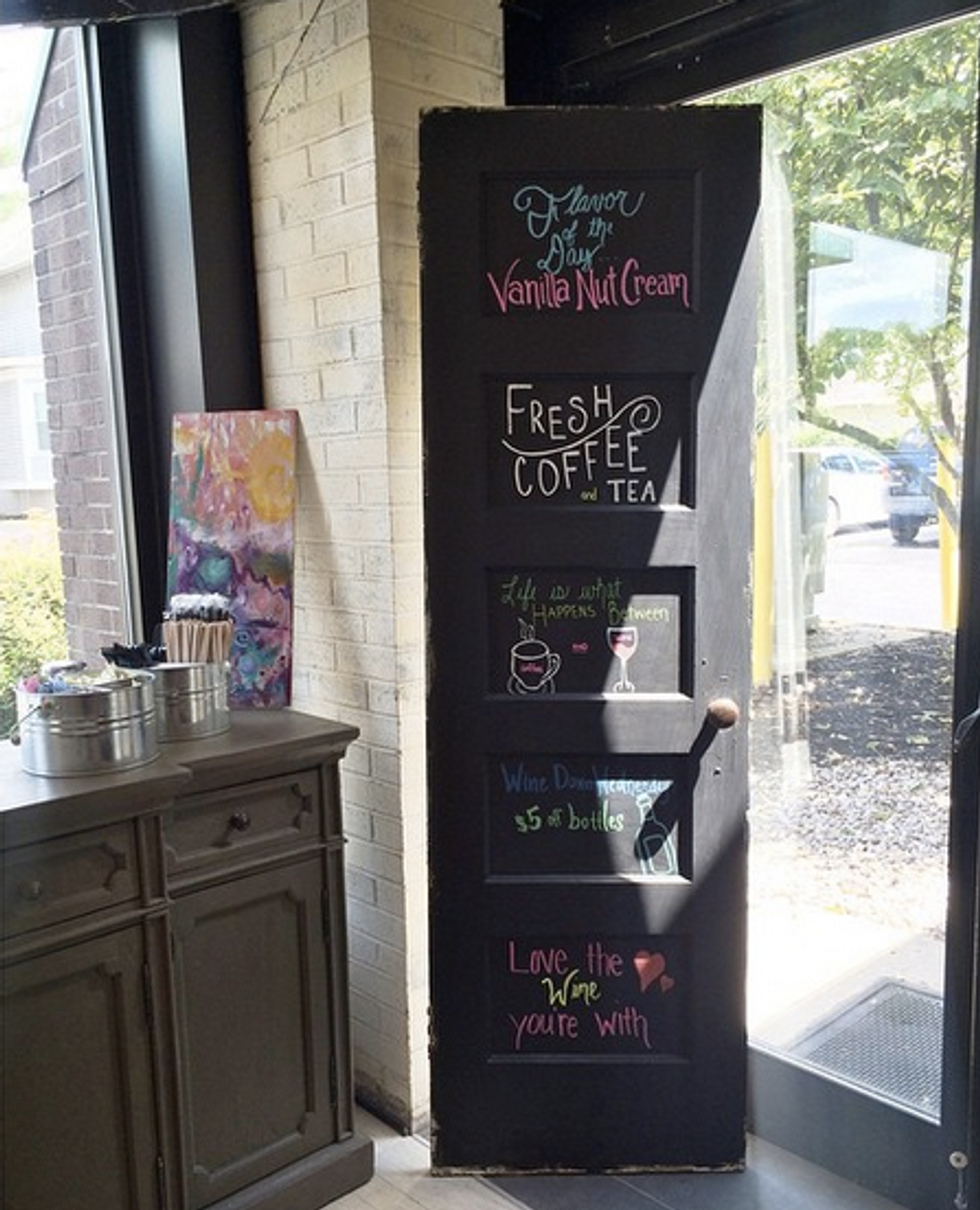 Flavor
of the
Day...
Vanilla Nut Cream
FRESH
COFFEE
and TEA
Life is what
HAPPENS Between
coffee
and
wine
Wine Down Wednesday
$5 off bottles
Love the
Wine
you're with